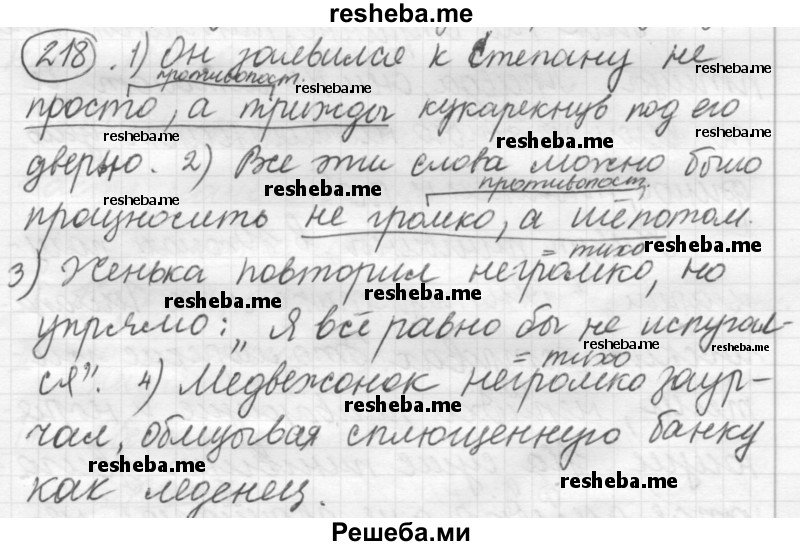 resheba.me
218. 1) Он заявился к Степану не
resheba.me
противопост.
resheba.me
просто, а трижды кукарекнув под его
resheba.me
resheba.me
resheba.me
дверью. 2) Все эти слова можно было
resheba.me
противопост.
произносить не громко, а шёпотом.
= тихо
resheba.me
3) Женька повторил негромко, но
resheba.me
упрямо: „Я всё равно бы не испугал-
resheba.me
= тихо
ся". 4) Медвежонок негромко заур-
resheba.me
чал, облизывая сплющенную банку
resheba.me
resheba.me
как леденец.
Решеба.ми